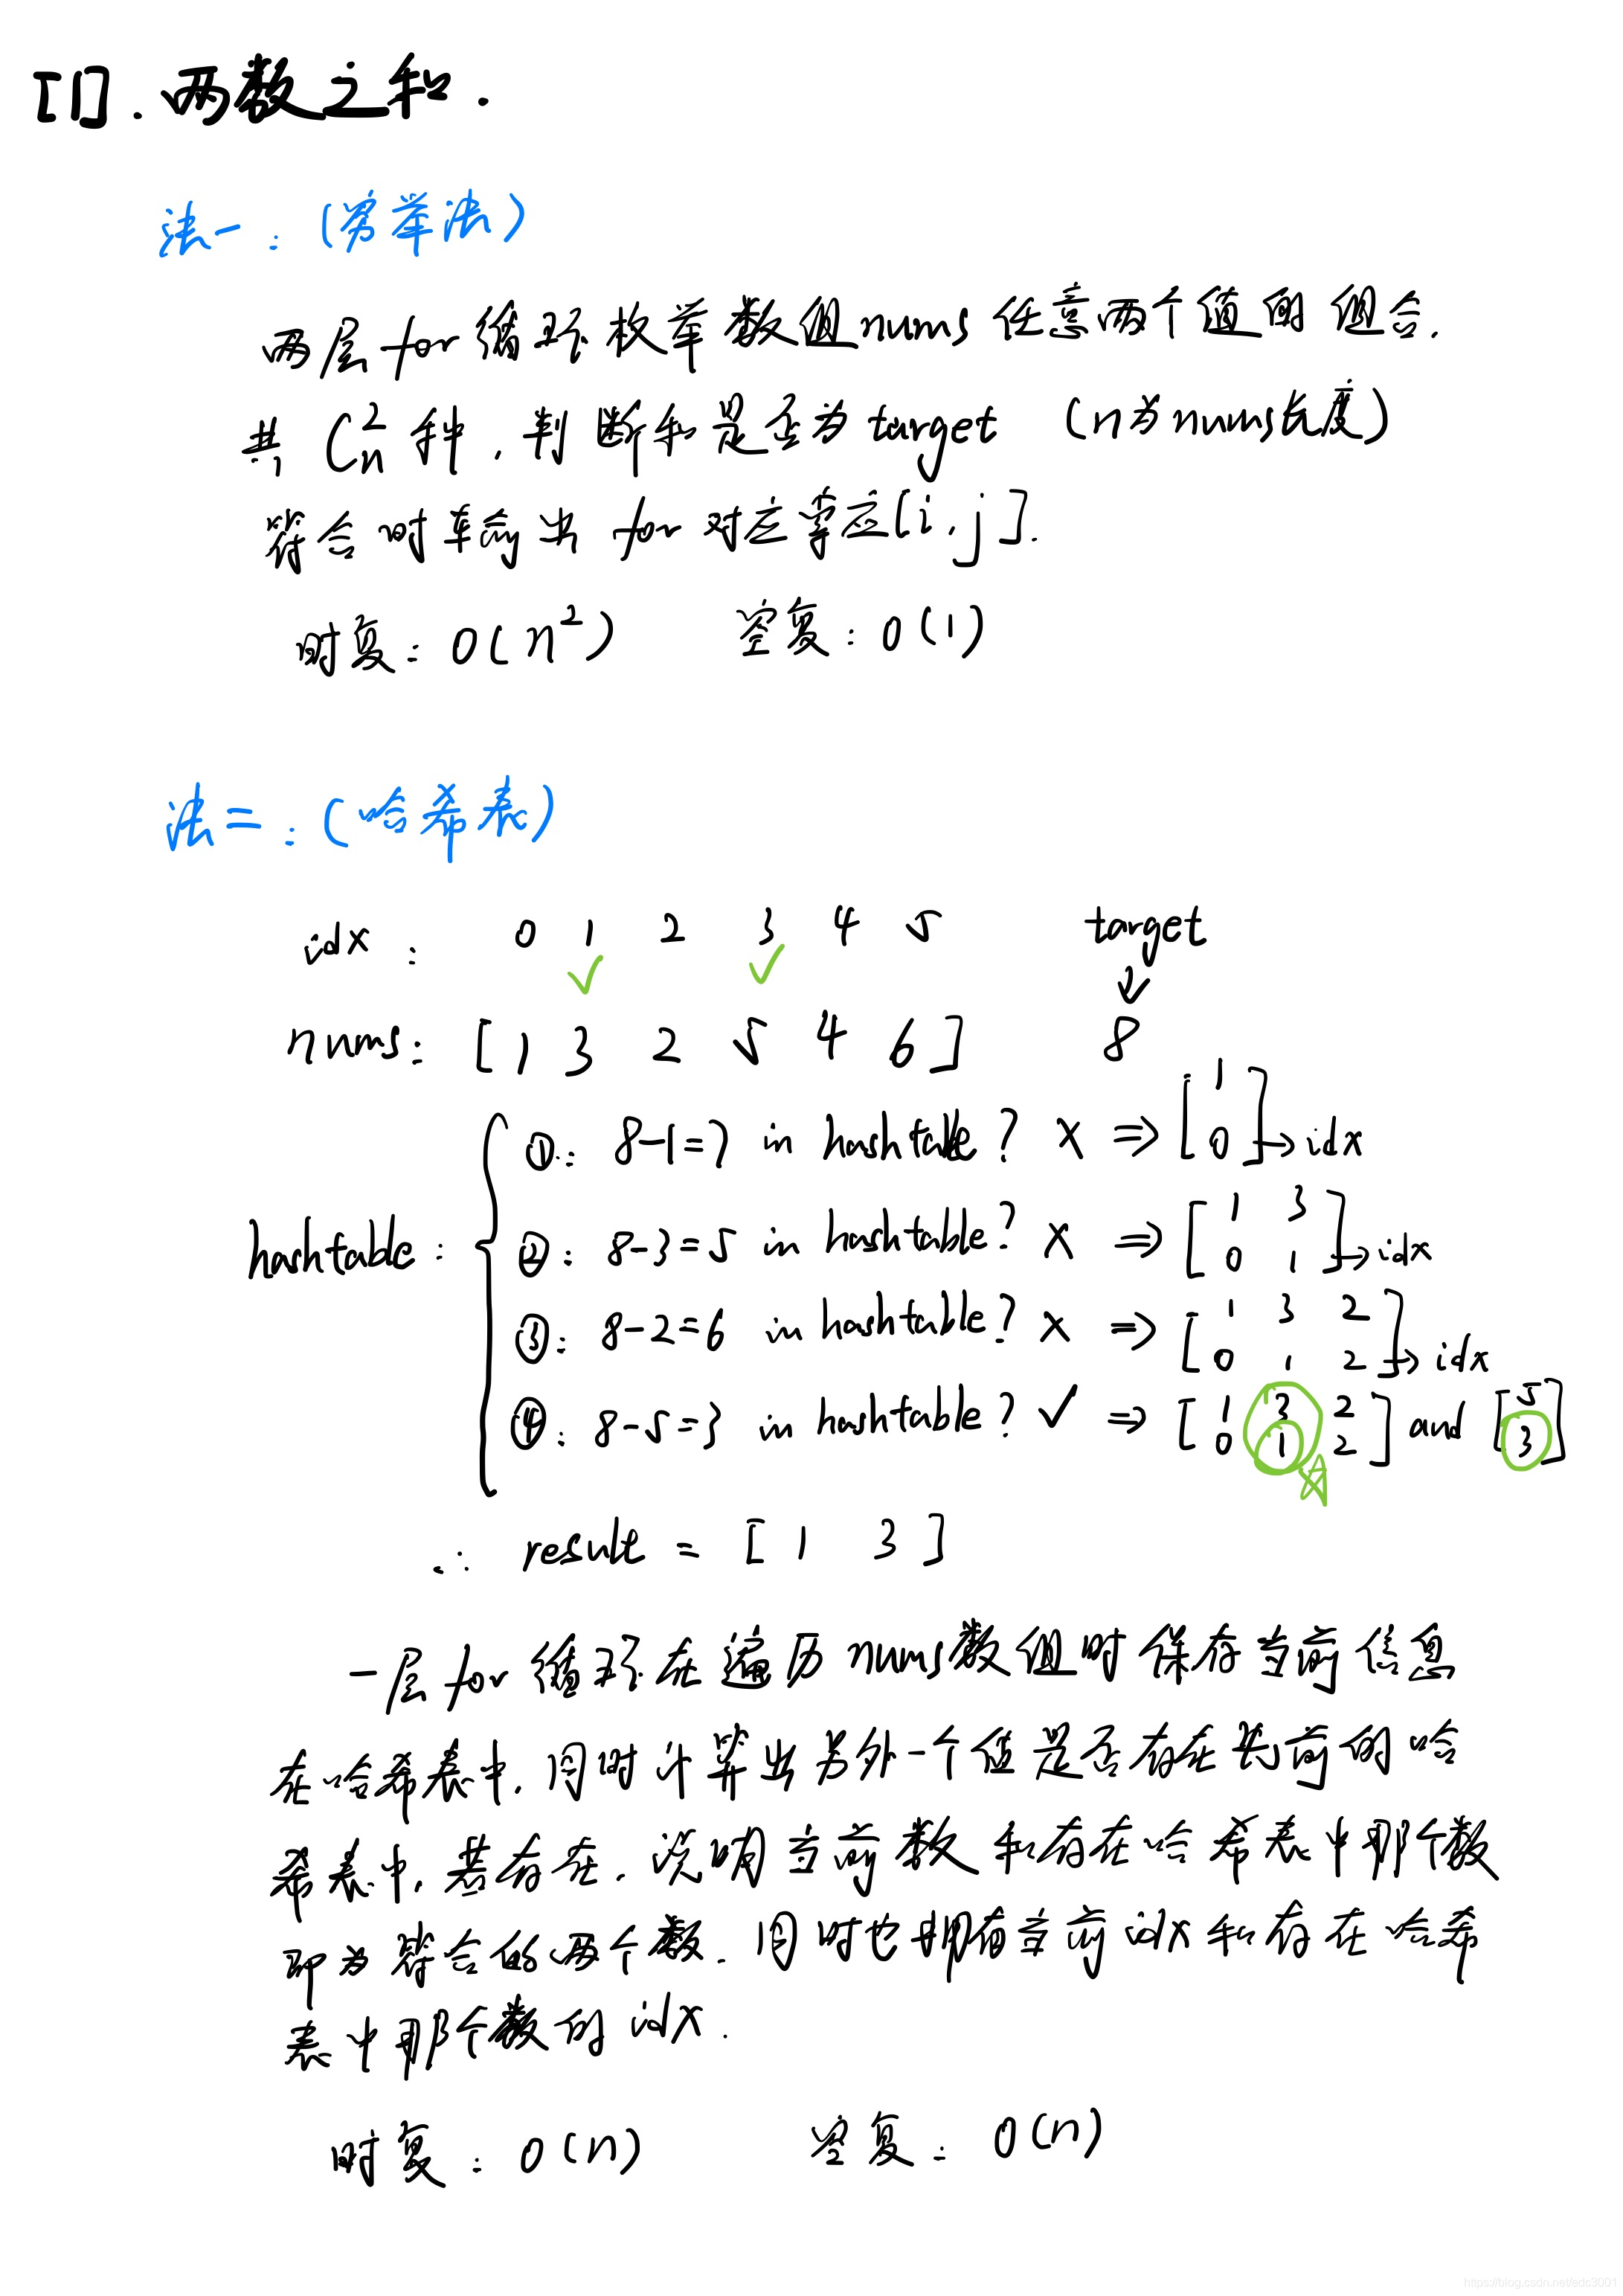 [1]. 两数之和.
法一:(穷举法)
两层for循环枚举数组nums任意两个值的组合.
共 C_n^2 种,判断和是否为target (n为nums长度)
符合时输出 for对应索引[i,j].
时复:O(n²) 空复:O(1)
法二:(哈希表)
idx: 0 1 2 3 4 5 target
✓ ✓ ↓
nums: [1 3 2 5 4 6] 8
①: 8-1=7 in hashtable? × ⇒ [1
0] → idx
hashtable: ②: 8-3=5 in hashtable? × ⇒ [1 3
0 1] → idx
③: 8-2=6 in hashtable? × ⇒ [1 3 2
0 1 2] → idx
④: 8-5=3 in hashtable? ✓ ⇒ [1 3 2
0 1 2] and [5
3]
∴ result = [1 3]
一层for循环在遍历nums数组时保存当前信息
在哈希表中,同时计算出另外一个值是否存在先前的哈
希表中,若存在,说明当前数和存在哈希表中那个数
即为符合的两个数.同时也拥有当前idx和存在哈希
表中那个数的idx.
时复:O(n) 空复:O(n)